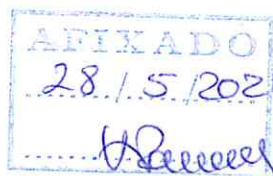 AFIXADO
28/5/202